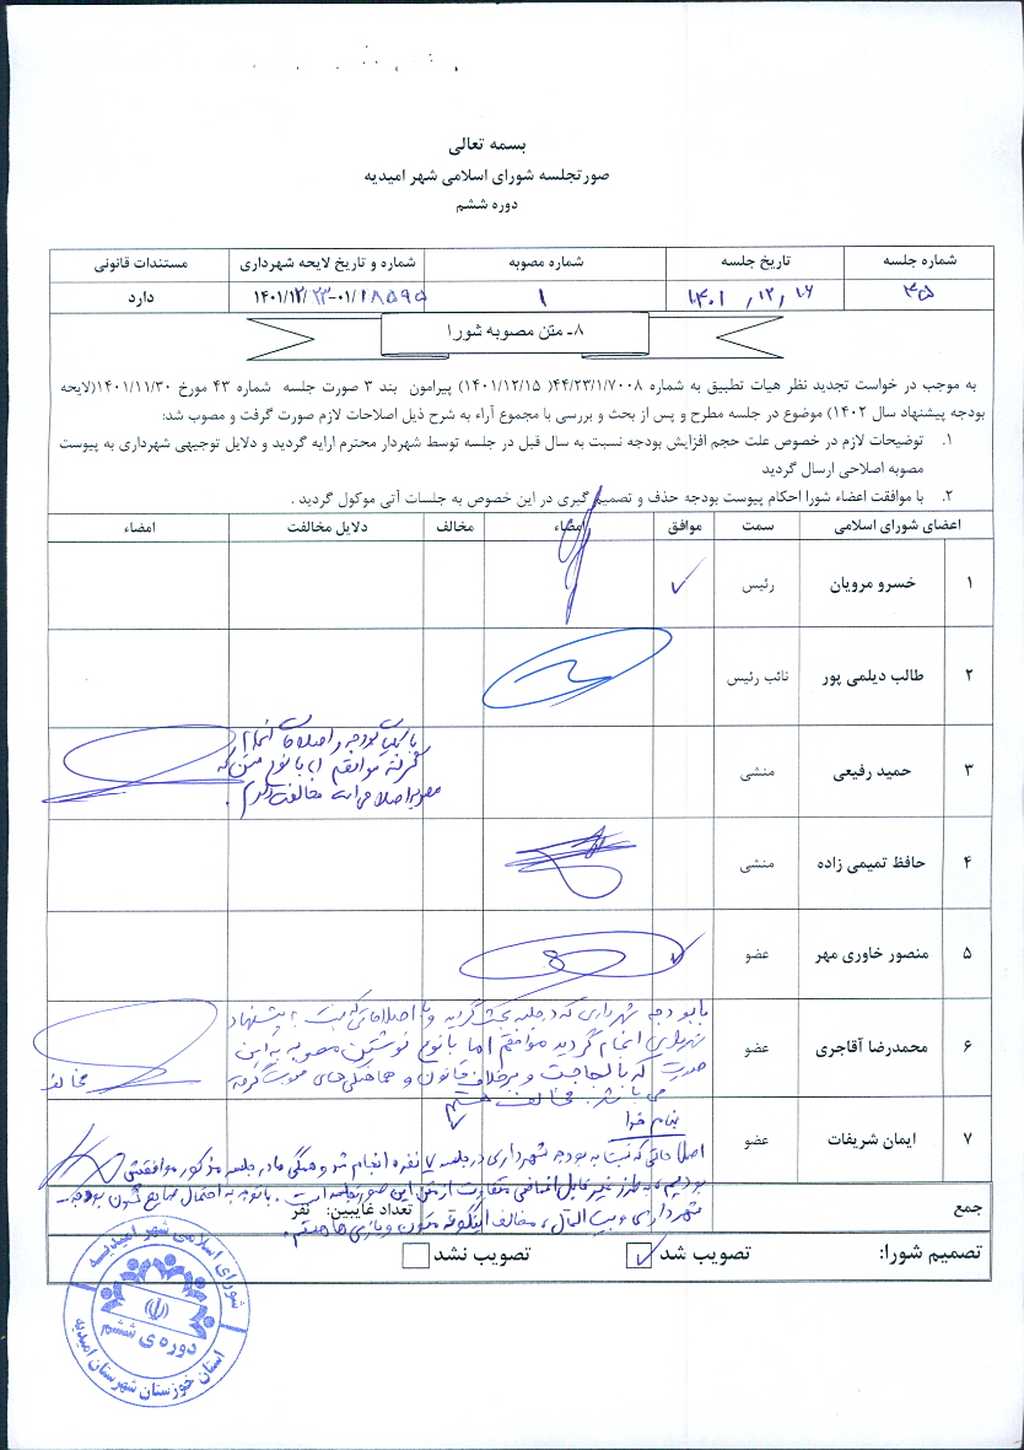 بسمه تعالی
صورتجلسه شورای اسلامی شهر امیدیه
دوره ششم
شماره جلسه
تاریخ جلسه
شماره مصوبه
شماره و تاریخ لایحه شهرداری
مستندات قانونی
۴۵
۱۴۰۱/۱۲/۱۶
۱
۱۴۰۱/۱۲/۲۳-۰۱/۱۸۵۹۵
دارد
۸ـ متن مصوبه شورا
به موجب در خواست تجدید نظر هیات تطبیق به شماره ۴۴/۲۳/۱/۷۰۰۸( ۱۴۰۱/۱۲/۱۵) پیرامون بند ۳ صورت جلسه شماره ۴۳ مورخ ۱۴۰۱/۱۱/۳۰(لایحه
بودجه پیشنهاد سال ۱۴۰۲) موضوع در جلسه مطرح و پس از بحث و بررسی با مجموع آراء به شرح ذیل اصلاحات لازم صورت گرفت و مصوب شد:
۱. توضیحات لازم در خصوص علت حجم افزایش بودجه نسبت به سال قبل در جلسه توسط شهردار محترم ارایه گردید و دلایل توجیهی شهرداری به پیوست
مصوبه اصلاحی ارسال گردید
۲. با موافقت اعضاء شورا احکام پیوست بودجه حذف و تصمیم گیری در این خصوص به جلسات آتی موکول گردید .
اعضای شورای اسلامی
سمت
موافق
امضاء
مخالف
دلایل مخالفت
امضاء
۱ خسرو مرویان رئیس
۲ طالب دیلمی پور نائب رئیس
۳ حمید رفیعی منشی
بودجه و اصلاحات انجام
گرفته موافقم با نوع متن که
مخالفت دارم .
۴ حافظ تمیمی زاده منشی
۵ منصور خاوری مهر عضو
۶ محمدرضا آقاجری عضو
با بودجه شهرداری که در جلسه بحث گردید و با اصلاحاتی که نسبت به پیشنهاد
شهرداری انجام گردید موافقم اما با نوع نوشتن مصوبه به این
صورت که با لجاجت و برخلاف قانون و هماهنگی‌های صورت گرفته
می باشد. مخالف هستم
مخالف
۷ ایمان شریفات عضو
بنام خدا
اصلاحاتی که نسبت به بودجه شهرداری در جلسه ۷ نفره انجام شد و همگی ما در جلسه مذکور موافقش
بودیم، به طرز غیر قابل اغماضی متفاوت از متن این صورتجلسه است. با توجه به احتمال ضایع شدن بودجه
شهرداری و بیت المال، مخالف اینگونه متون و بازی ها هستم.
جمع
تعداد غایبین: نفر
تصمیم شورا:
تصویب شد
تصویب نشد
شورای اسلامی شهر امیدیه
دوره ی ششم
استان خوزستان شهرستان امیدیه